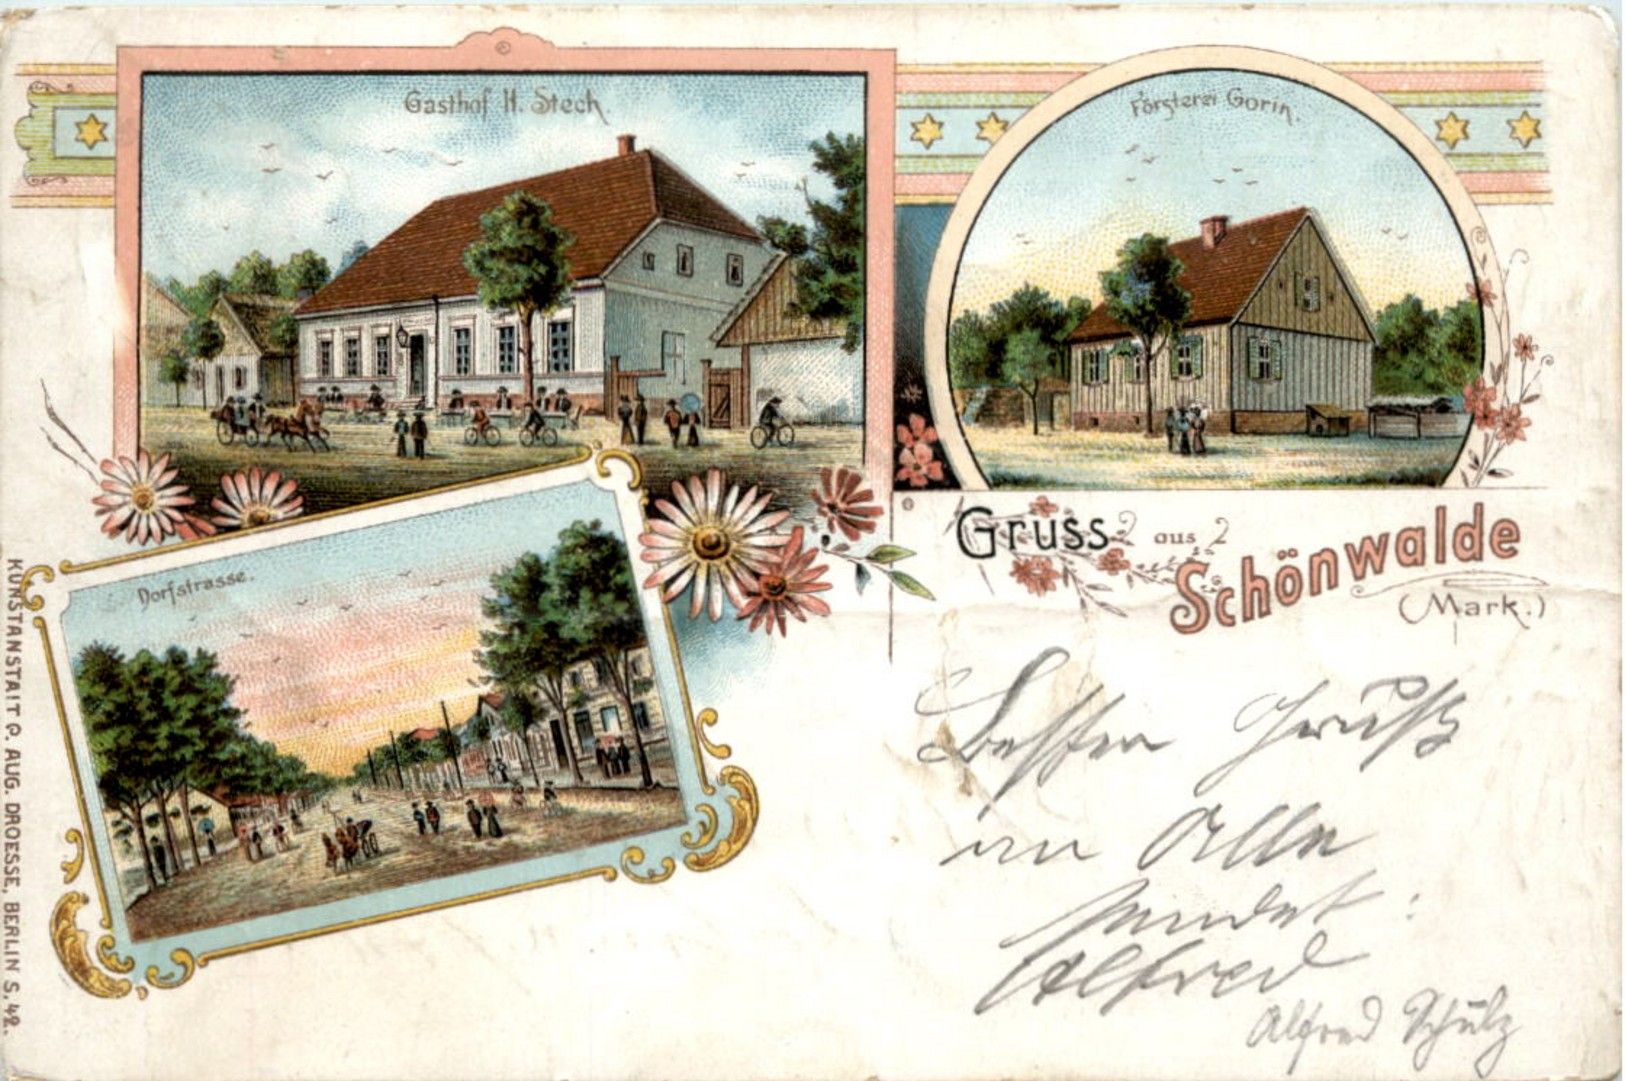 Gasthof H. Stech.
Försterei Gorin.
Dorfstrasse.
Gruss aus
Schönwalde
(Mark.)
Besten Gruß
an Alle
sendet:
Alfred
Alfred Schulz
KUNSTANSTALT C. AUG. DROESSE, BERLIN S. 42.